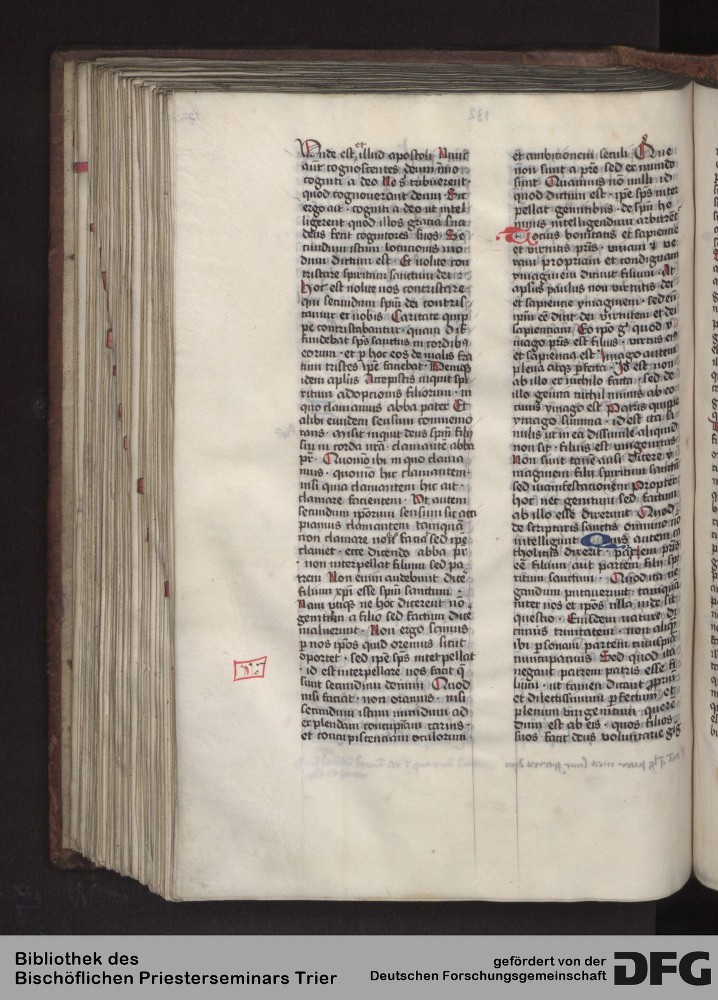 132
Unde est et illud apostoli Nunc
aut cognoscentes deum imo
cogniti a deo Nec tribuerent
quod cognouerant deum · Sic
ergo ait · cogniti a deo ut intel
ligerent quod illos gratia sua
deus fecit cognitores suos · Se
cundum istum locutionis mo
dum dictum est · Et nolite con
tristare spiritum sanctum dei ·
hoc est nolite nos contristare
qui secundum spm dei contris
tamur ex nobis Caritate quip
pe contristabantur · quam dif
fundebat sps sanctus in cordibꝫ
eorum · et p hoc eos de malis fra
trum tristes ipe faciebat Denique
idem aplus Accepistis inquit spi
ritum adoptionis filiorum · in
quo clamamus abba pater Et
alibi eundem sensum commemo
rans · misit inquit deus spm filij
sui in corda nra clamante abba
pr · Quomo ibi in quo clama
mus · quomo hic clamantem
nisi quia clamantem hic ait ·
clamare facientem · Ut autem
secundum iporum sensum sic acci
piamus clamantem tamquam
non clamare nos faciat sed ipe
clamet · ecce dicendo abba pr
non interpellat filium sed pa
trem Non enim audebunt dice
filium xpi esse spm sanctum
Nam utique ne hoc dicerent no
genitum a filio sed factum dice
maluerunt · Non ergo scimus
p nos ipos quid oremus sicut
oportet · sed ipe sps interpellat
· id est interpellare nos facit q
sunt secundum deum Quod
nisi faciat · non oramus · nisi
secundum istum mundum ad
explendam concupiam carnis ·
et concupiscentiam oculorum
et ambitionem seculi Que
non sunt a pre sed ex mundo
sunt Quamuis no nulli id
quod dictum est · ipe sps inter
pellat gemitibus · de spu ho
minis intelligendum arbitret
Tocius bonitatis et sapiencie
et virtutis pris · unicam et ve
ram propriam et condignam
ymaginem dicimt filium · At
aplus paulus non virtutis dei
et sapiencie ymaginem · sed eum
ipm ee dicit dei virtutem et dei
sapienciam Eo ipo g quod y
mago pris est filius · virtus eius
et sapiencia est Imago autem
plena atque pfecta · id est non
ab illo ex nichilo facta · sed de
illo genita nichil minus ab eo
cuius ymago est Patris quippe
ymago summa · id est ita si
milis ut in ea dissimile aliquid
non sit · filius est unigenitus
Non sunt tame ausi dicere y
maginem filij spiritum sanctum
sed manifestationem Propter
hoc nec genitum sed factum
ab illo esse dixerunt Quod
de scripturis sanctis omnino no
intelligunt Quis autem ca
tholicus dixerit · partem pris
ee filium aut partem filij spi
ritum sanctum · Quod ita ne
gandum putauerunt · tamquam
inter nos et ipos illa inde sit
questio · Eiusdem nature di
cimus trinitatem · non aliquam
ibi psonam partem cuiuspia
nuncupamus Sed quod ita
negant patrem patris esse fi
lium · ut tamen dicant pprium
et dilectissimum pfectum et
plenum unigenitum · quere
dum est ab eis · quos filios
suos facit deus voluntarie gig
Bibliothek des
Bischöflichen Priesterseminars Trier
gefördert von der
Deutschen Forschungsgemeinschaft
DFG